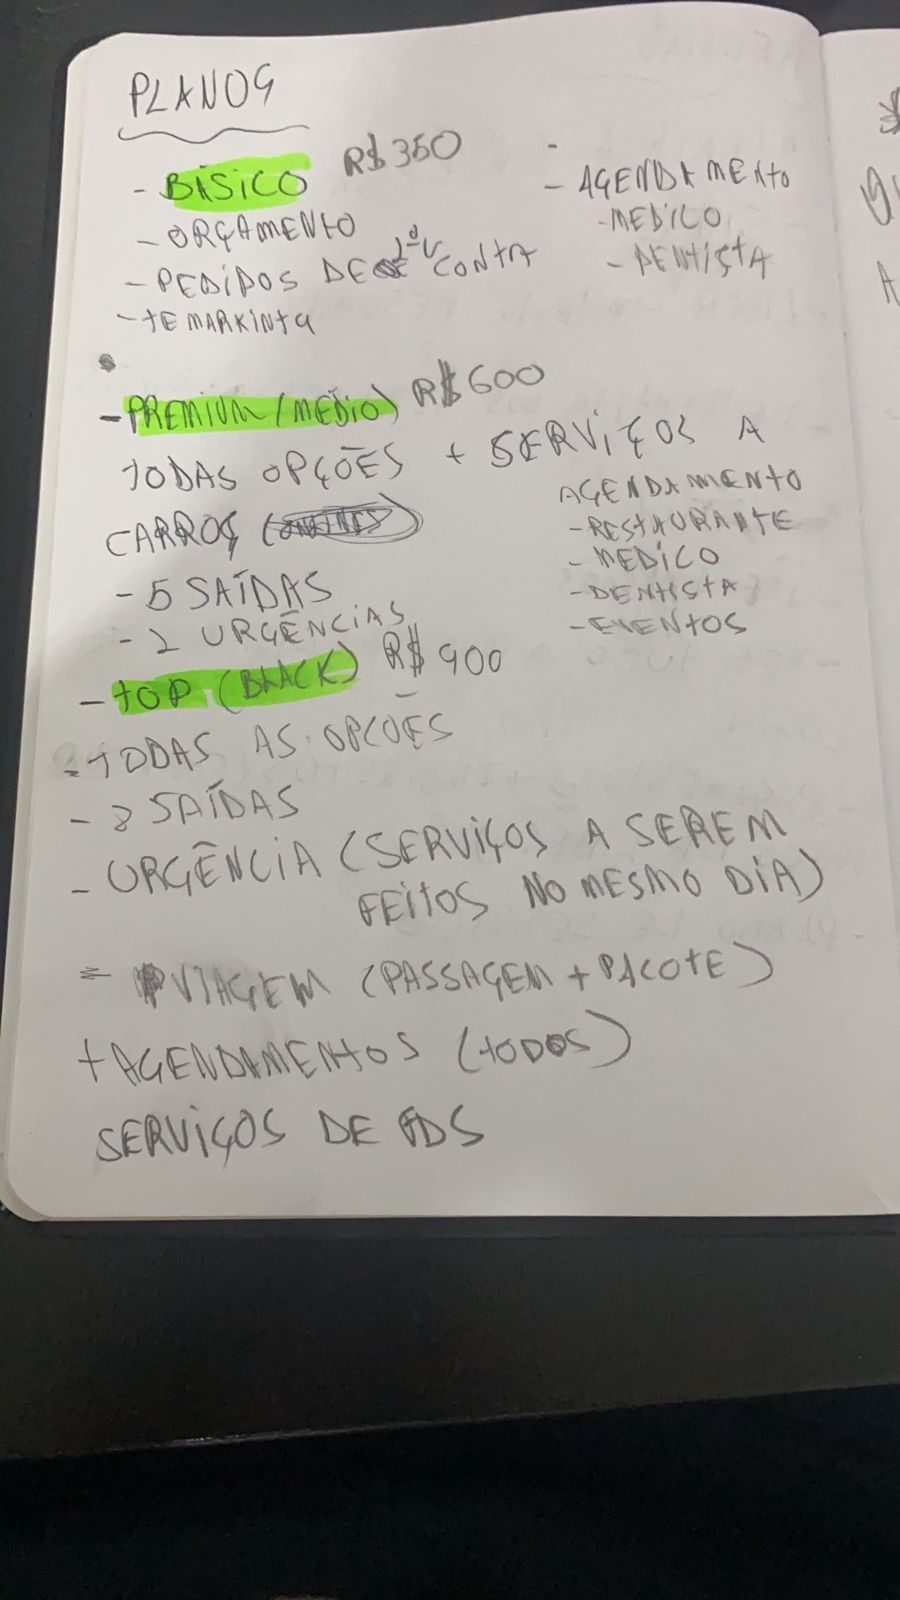 PLANOS
- BÁSICO R$350
- ORÇAMENTO
- PEDIDOS DE 2ª V CONTA
- TE MARKINTG
- AGENDAMENTO
- MEDICO
- DENTISTA
- PREMIUM (MEDIO) R$600
TODAS OPÇÕES + SERVIÇOS A
CARROS
- 5 SAÍDAS
- 2 URGÊNCIAS
AGENDAMENTO
- RESTAURANTE
- MEDICO
- DENTISTA
- EVENTOS
- TOP (BLACK) R$ 900
- TODAS AS OPCOES
- 8 SAÍDAS
- URGÊNCIA (SERVIÇOS A SEREM
FEITOS NO MESMO DIA)
= VIAGEM (PASSAGEM + PACOTE)
+ AGENDAMENTOS (TODOS)
SERVIÇOS DE FDS